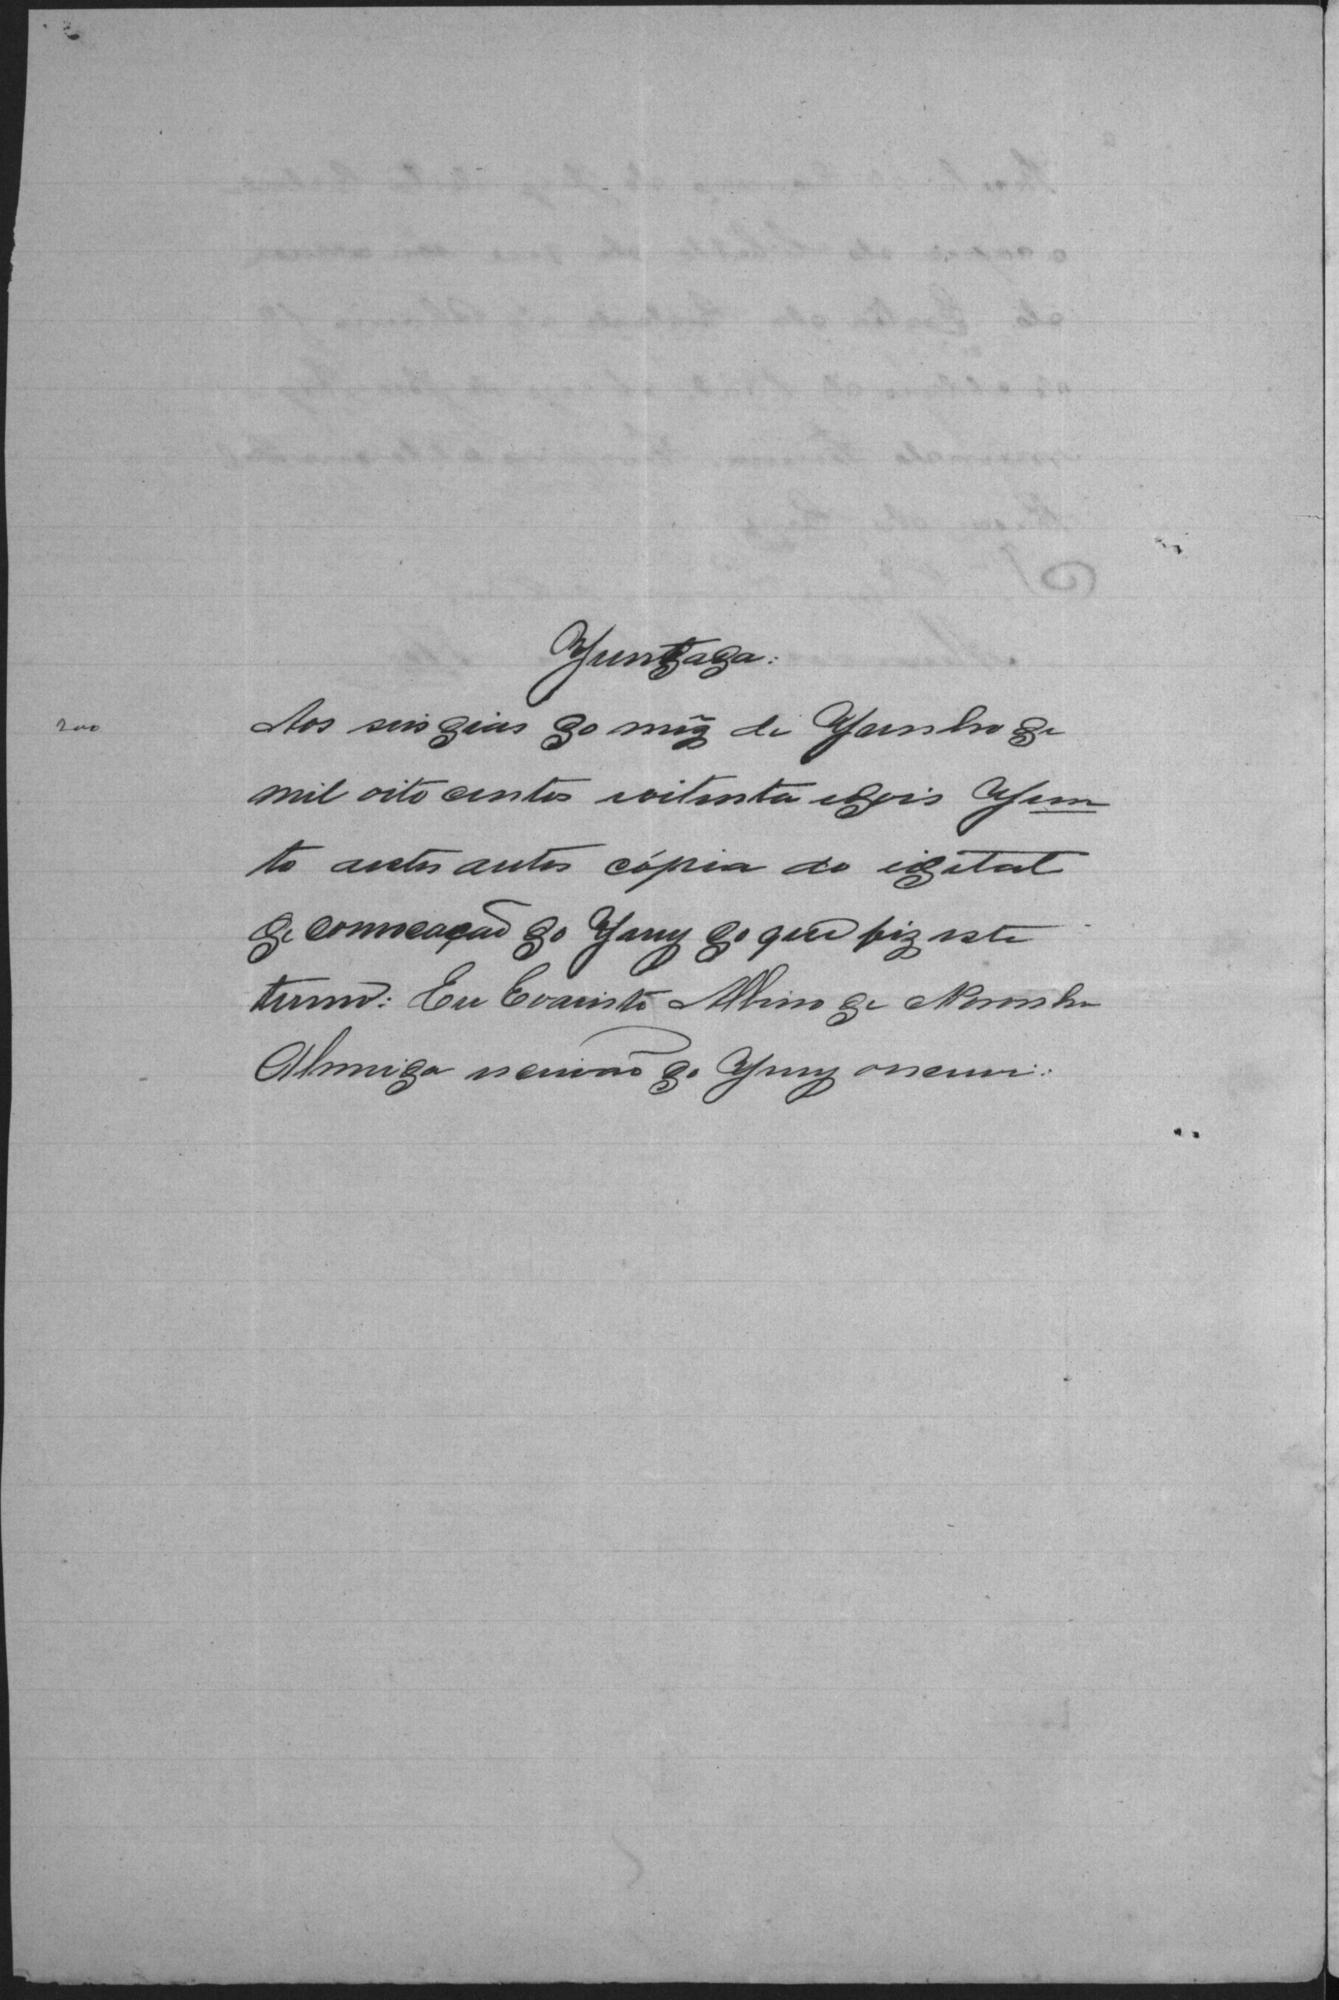 Juntada:
200
Aos seis dias do mêz de Junho de
mil oito centos eoitenta edois Jun
to aestes autos cópia do idital
de convocação do Jury do que fiz este
termo: Eu Evaristo Albino de Noronha
Almeida escrivão do Jury oscrevi: